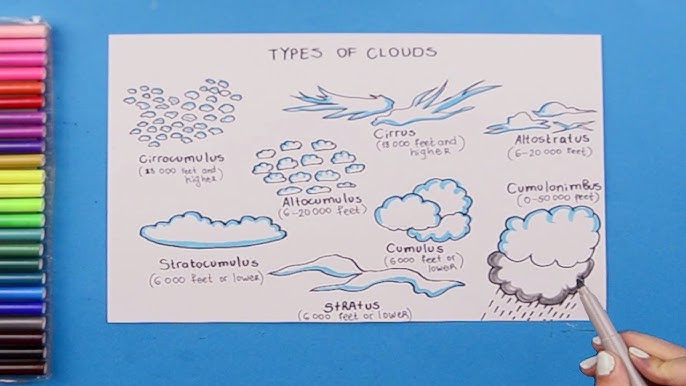 TYPES OF CLOUDS
Cirrocumulus
(18 000 feet and
higher)
Cirrus
(18 000 feet and
higher)
Altostratus
(6-20 000 feet)
Altocumulus
(6-20 000 feet)
Cumulonimbus
(0-50 000 feet)
Stratocumulus
(6 000 feet or lower)
Cumulus
(6 000 feet or
lower)
Stratus
(6 000 feet or lower)